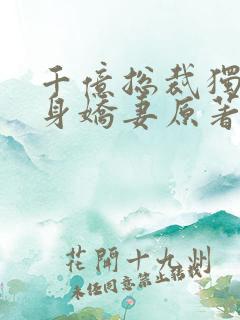 千億總裁獨
身嬌妻原著
花開十九州
未經同意禁止轉載